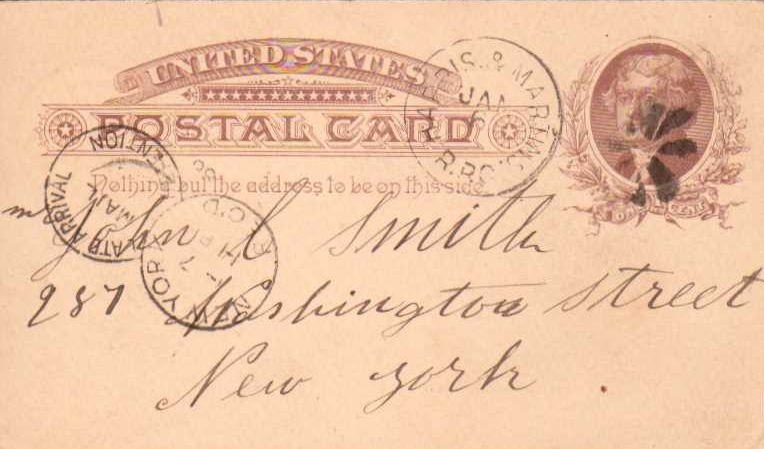 UNITED STATES
POSTAL CARD
Nothing but the address to be on this side.
ONE CENT
& MAR
JAN
6
R.P.O.
LATE ARRIVAL
NEW YORK
REC'D
7
88
Mr John C Smith
287 Washington Street
New York